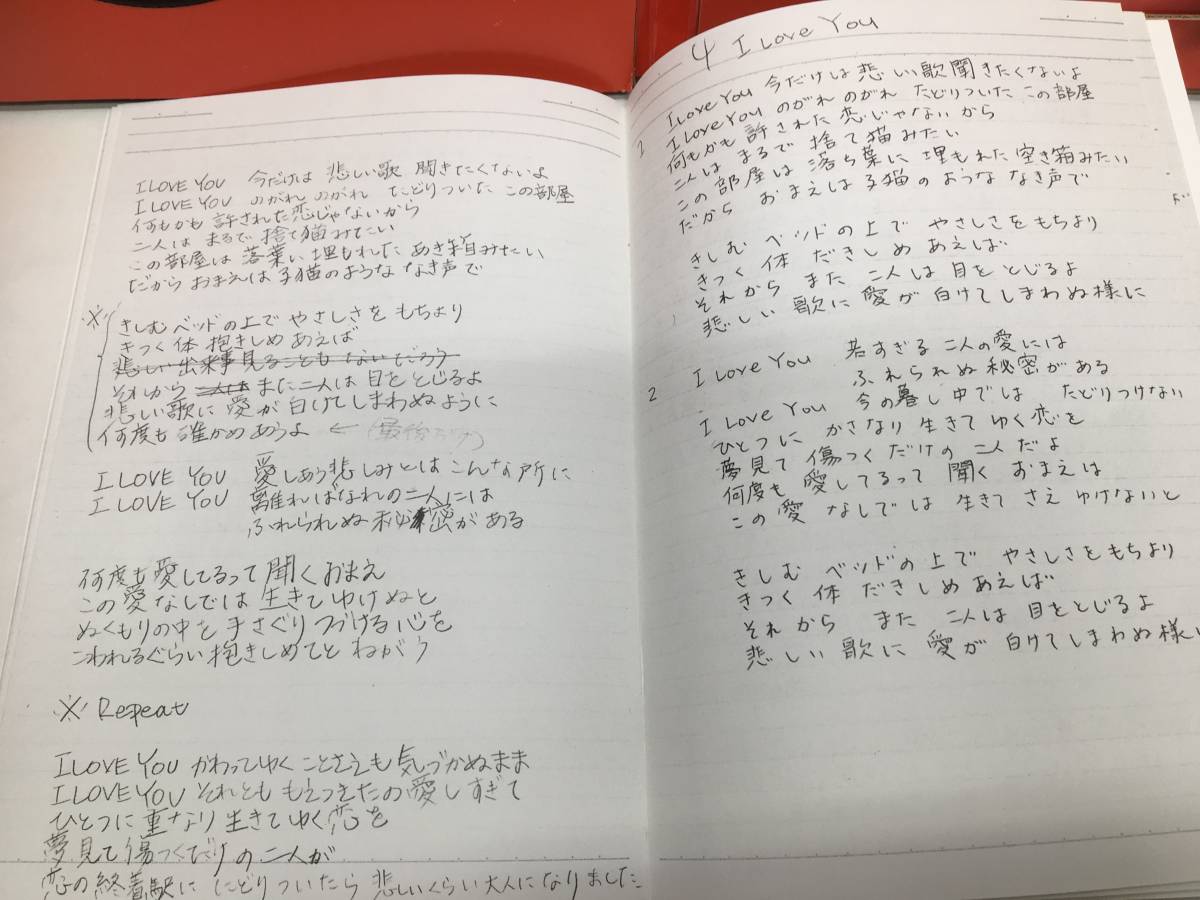 I LOVE YOU 今だけは 悲しい歌 聞きたくないよ
I LOVE YOU のがれ のがれ たどりついた この部屋
何もかも 許された恋じゃないから
二人は まるで 捨て猫みたい
この部屋は 落葉に埋もれた あき箱みたい
だから おまえは 子猫のような なき声で
※ きしむベッドの上で やさしさを もちより
きつく体 抱きしめ あえば
悲しい 出来事 見ることも ないだろう
それから 二人は また二人は 目を とじるよ
悲しい歌に 愛が 白けてしまわぬように
何度も 確かめあうよ ← (最後だけ)
I LOVE YOU 愛しあう悲しみとは こんな所に
I LOVE YOU 離ればなれの二人には
ふれられぬ 秘密がある
何度も 愛してるって 聞く おまえ
この愛なしでは 生きてゆけぬと
ぬくもりの中を 手さぐり つづける心を
こわれるぐらい 抱きしめてと ねがう
※ Repeat
I LOVE YOU かわってゆく ことさえも 気づかぬまま
I LOVE YOU それとも もえつきたの 愛しすぎて
ひとつに 重なり 生きてゆく 恋を
夢見て 傷つくだけ の 二人が
恋の 終着駅に たどりついたら 悲しいくらい 大人になりました
4 I Love You
1 I Love You 今だけは 悲しい歌聞きたくないよ
I Love You のがれ のがれ たどりついた この部屋
何もかも 許された 恋じゃないから
二人は まるで 捨て猫みたい
この部屋は 落ち葉に 埋もれた 空き箱みたい
だから おまえは 子猫のような なき声で
きしむ ベッドの上で やさしさを もちより
きつく 体 だきしめ あえば
それから また 二人は 目を とじるよ
悲しい 歌に 愛が 白けてしまわぬ様に
2 I Love You 若すぎる 二人の愛には
ふれられぬ 秘密がある
I Love You 今の暮し中では たどりつけない
ひとつに かさなり 生きて ゆく恋を
夢見て 傷つくだけの 二人だよ
何度も 愛してるって 聞く おまえは
この愛 なしでは 生きて さえ ゆけないと
きしむ ベッドの上で やさしさを もちより
きつく 体 だきしめ あえば
それから また 二人は 目を とじるよ
悲しい 歌に 愛が 白けてしまわぬ様に